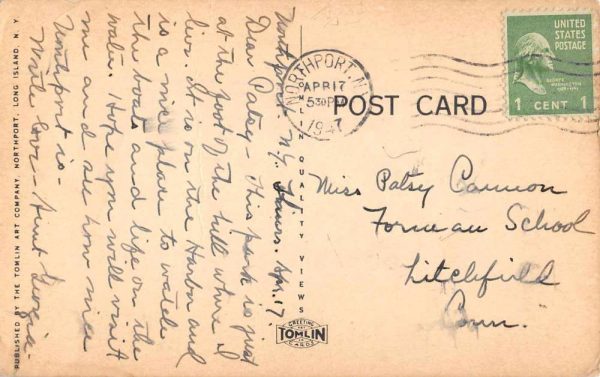 Northport. N.Y. Thurs. Apr. 17
Dear Patsy - This park is just
at the foot of the hill where I
live. It is on the Harbor and
is a nice place to watch
the boats and life on the
water. Hope you will visit
me and see how nice
Northport is -
Write Love - Aunt Georgia -
PUBLISHED BY THE TOMLIN ART COMPANY, NORTHPORT, LONG ISLAND, N. Y.
TOMLIN QUALITY VIEWS
GREETING
TOMLIN
CARDS
NORTHPORT, N.Y.
APR 17
530 PM
1947
POST CARD
UNITED
STATES
POSTAGE
GEORGE
WASHINGTON
1 CENT 1
Miss Patsy Cannon
Forman School
Litchfield
Conn.